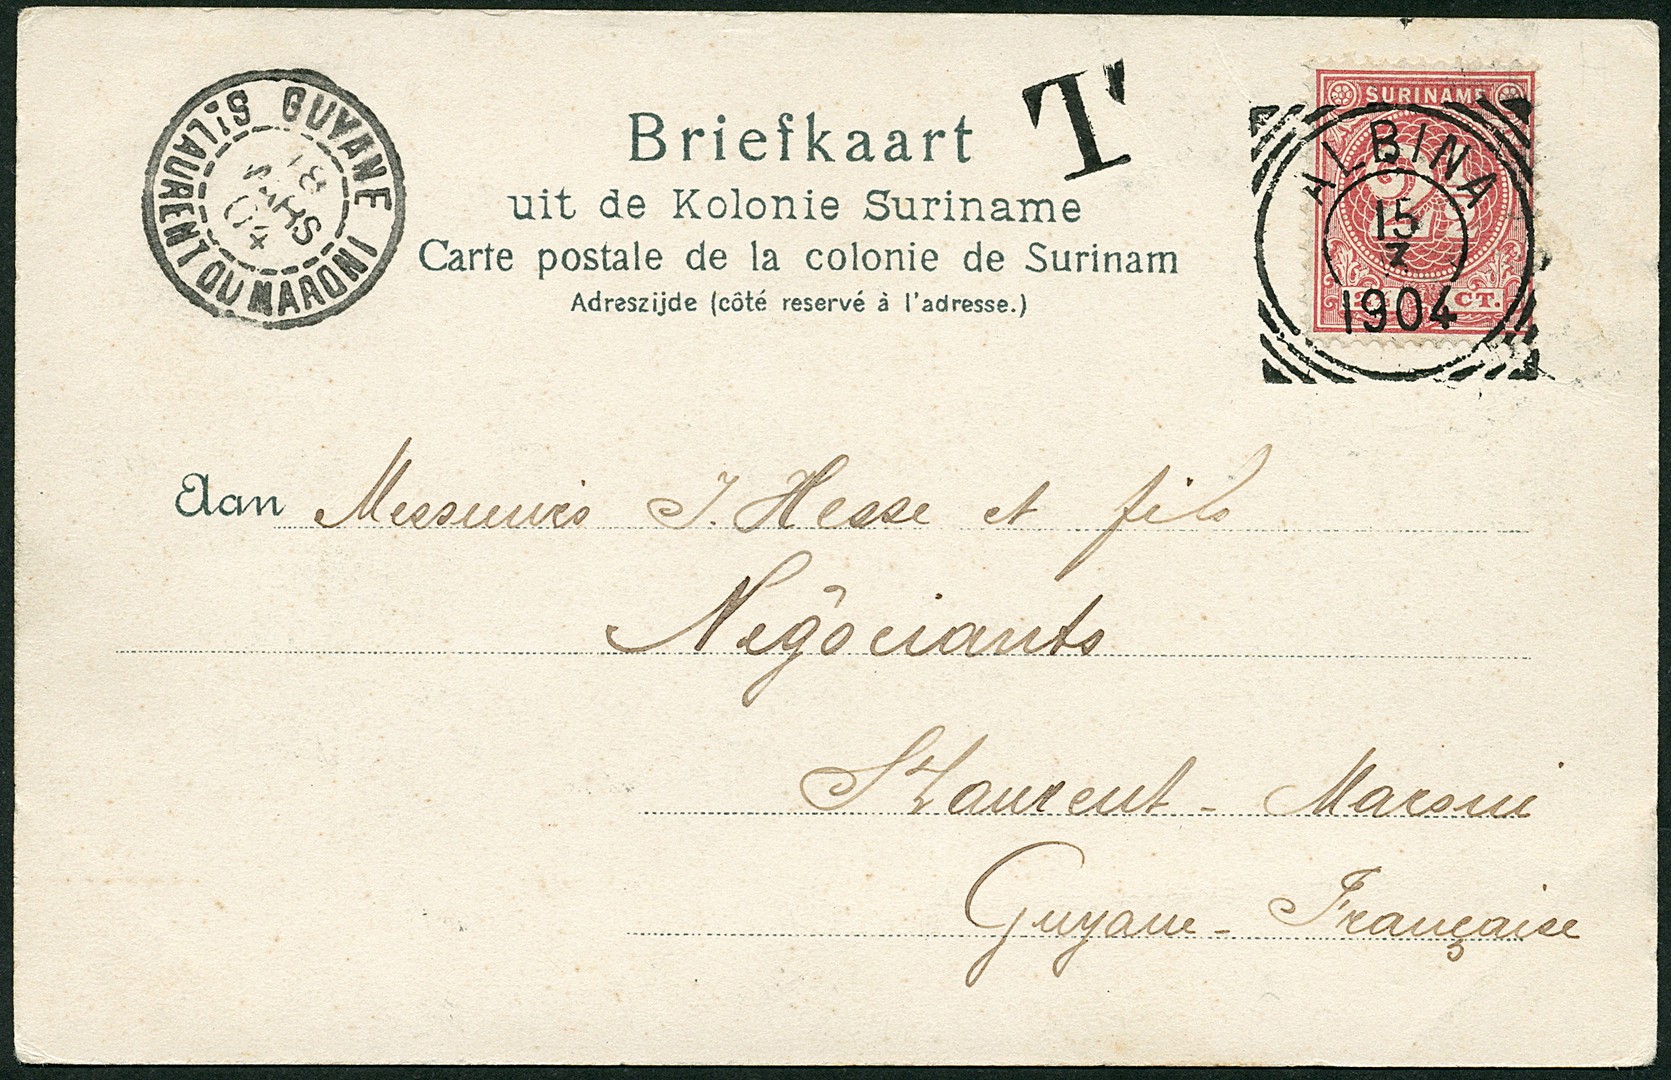 GUYANE
18
MARS
04
ST LAURENT DU MARONI
Briefkaart
T
uit de Kolonie Suriname
Carte postale de la colonie de Surinam
Adreszijde (côté reservé à l'adresse.)
SURINAME
ALBINA
15
3
1904
CT.
Aan Messieurs J. Hesse et fils
Négociants
St Laurent - Maroni
Guyane - Française